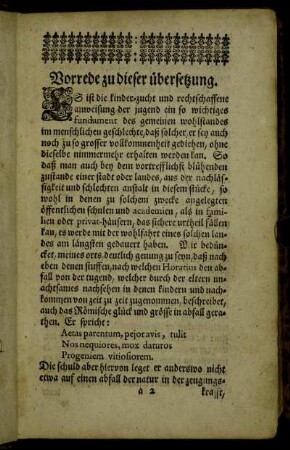 Vorrede zu dieser übersetzung.
ES ist die kinder-zucht und rechtschaffene
anweisung der jugend ein so wichtiges
fundament des gemeinen wohlstandes
im menschlichen geschlechte, daß solcher, er sey auch
noch zu so grosser vollkommenheit gediehen, ohne
dieselbe nimmermehr erhalten werden kan. So
daß man auch bey dem vortrefflichst blühenden
zustande einer stadt oder landes, aus der nachläs-
sigkeit und schlechten anstalt in diesem stücke, so
wohl in denen zu solchem zwecke angelegten
öffentlichen schulen und academien, als in fami-
lien oder privat-häusern, das sichere urtheil fällen
kan, es werde mit der wohlfahrt eines solchen lan-
des am längsten gedauert haben. Mir bedün-
cket, meines orts, deutlich genung zu seyn, daß nach
eben denen stuffen, nach welchen Horatius den ab-
fall von der tugend, welcher durch der eltern un-
achtsames nachsehen in denen kindern und nach-
kommen von zeit zu zeit zugenommen, beschreibet,
auch das Römische glück und grösse in abfall gera-
then. Er spricht:
Aetas parentum, pejor avis, tulit
Nos nequiores, mox daturos
Progeniem vitiosiorem.
Die schuld aber hiervon leget er anderswo nicht
etwa auf einen abfall der natur in der zeugungs-
a 2 krafft,